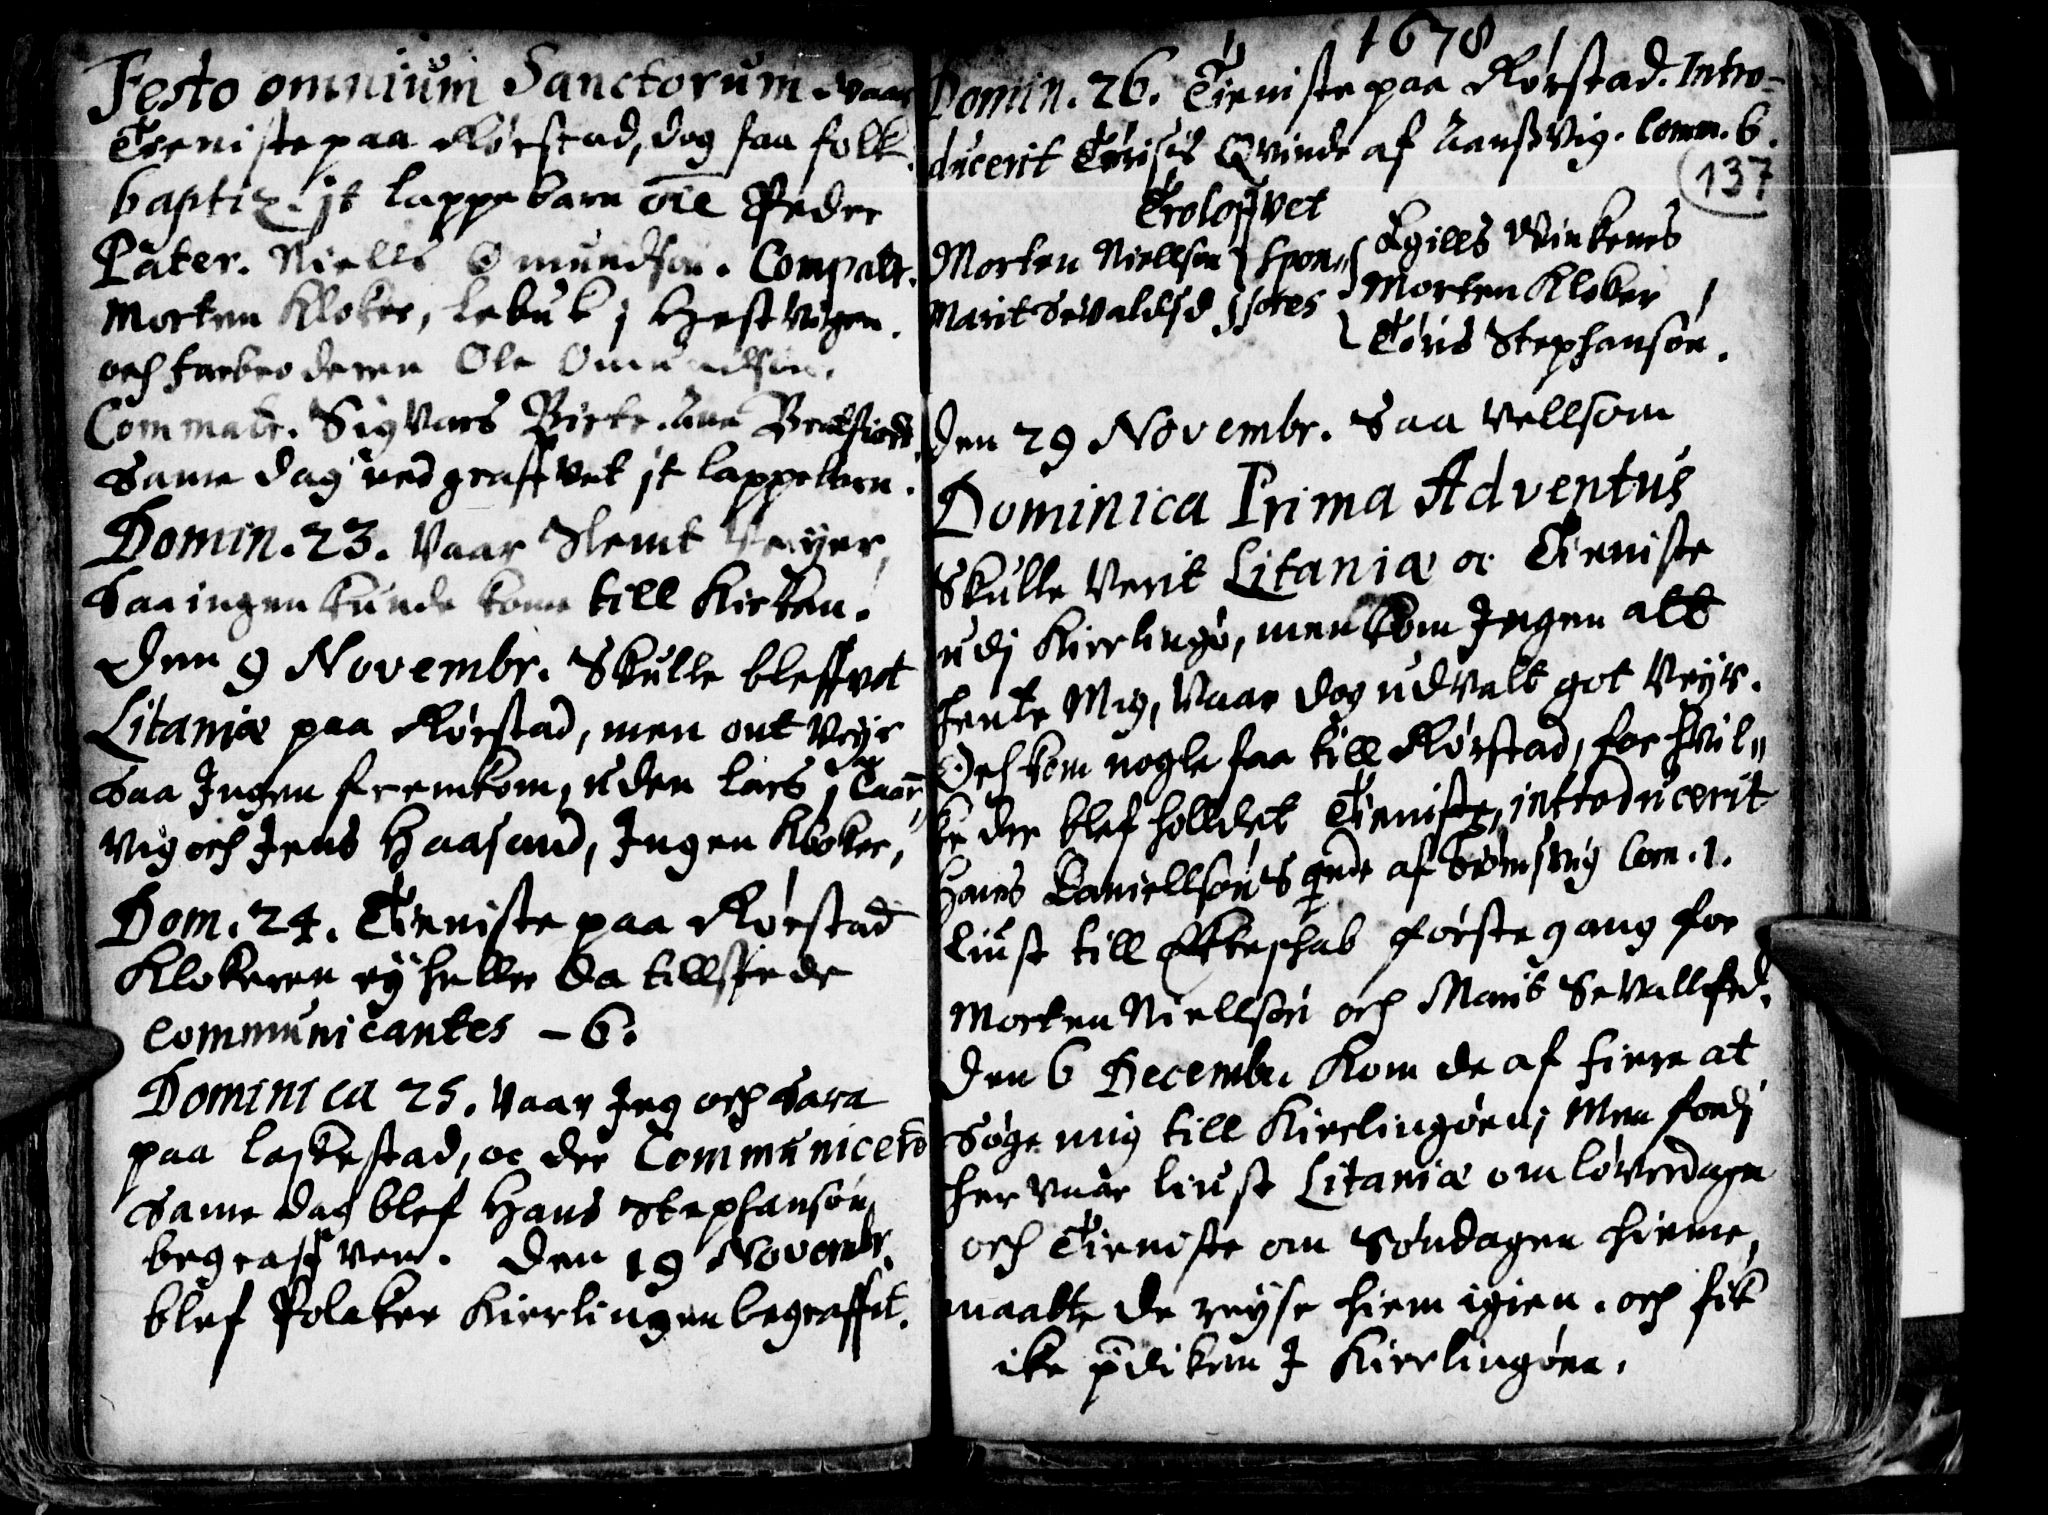 Festo omnium Sanctorum vaar
Tieniste paa Rørstad, dog faa folk.
baptiz. it lappe barn  Peder
Pater. Niells Omundsøn. Compatr.
Morten Kloker, Lebuk i Hestvigen.
och farbroderen Ole Omundsøn.
Commatr. Sigvars Birte.
Same dag nedgraffvet it lappebarn.
Domin. 23. Vaar Slemt Veyer,
Saa ingen kunde kome till Kirken.
Den 9 Novembr. Skulle bleffvet
Litaniæ paa Rørstad, men ont Veyr
saa Ingen fremkom, uden Lars i
vig och Jens Haasand, Ingen Kloker,
Dom. 24. Tieniste paa Rørstad
Klokeren ey heller da tillstede
Communicantes – 6.
Dominica 25. Vaar Jeg och Sara
paa Laskestad, oc der Communicerd
Same dag blef Hans Stephansøn
begraffven. Den 19 Novembr.
blef Polaker Kierlingen begraffit.
1678
Domin. 26. Tieniste paa Rørstad. Intro-
ducerit Tørises Qvinde af Aansvig. Comm. 6.
137
Troloffvet
Morten Niellsøn } Spon„ { Egills Vinkenes
Marit Sevaldsd } sores { Morten Kloker
Tøris Stephansøn.
Den 29 Novembr. Saa vellsom
Dominica Prima Adventus
Skulle Verit Litaniæ oc Tieniste
udi Kierlingø, men kom Ingen att
hente Mig, Vaar dog udvalt got Veyr.
Och kom nogle faa till Rørstad, for hvil„
ke der blef holldet Tieniste, introducerit
Hans Daniellsøns qvde af Strømsvig Com. 1.
Liust till Ekteskab første gang for
Morten Niellsøn och Marit Sevallsd.
Den 6 Decembr. Kom de af Fiere at
Søge mig till Kierlingøen; Men fordj
her vaar liust Litaniæ om Løverdagen
och Tieniste om Søndagen hieme,
maatte de reyse hiem igien. och fik
ike pdiken I Kierlingøen.